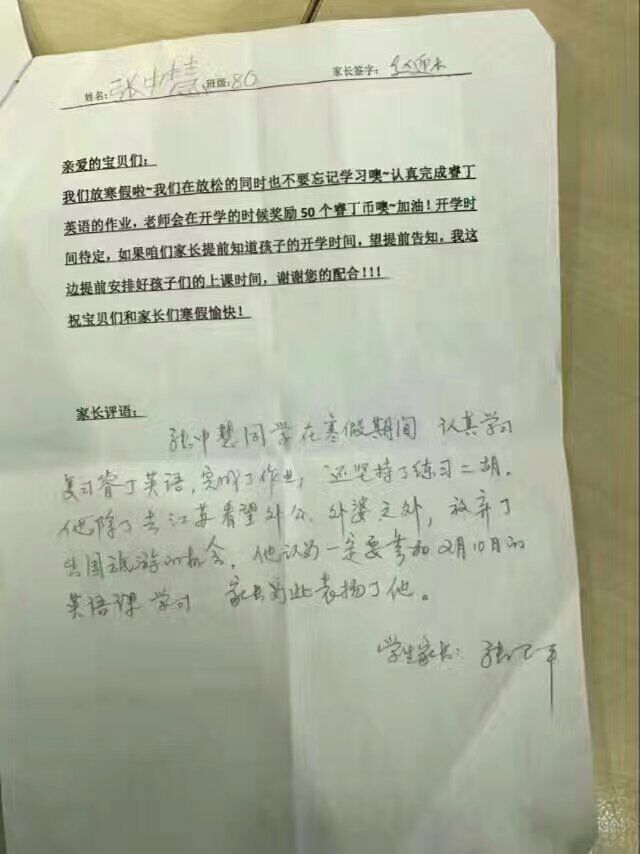 姓名：张中慧 班级：80 家长签字：
亲爱的宝贝们：
我们放寒假啦~我们在放松的同时也不要忘记学习噢~认真完成睿丁
英语的作业，老师会在开学的时候奖励 50 个睿丁币噢~加油！开学时
间待定，如果咱们家长提前知道孩子的开学时间，望提前告知，我这
边提前安排好孩子们的上课时间，谢谢您的配合！！！
祝宝贝们和家长们寒假愉快！
家长评语：
张中慧同学在寒假期间 认真学习
复习睿丁英语，完成了作业，还坚持了练习二胡。
他除了去江苏看望外公、外婆之外，放弃了
出国旅游的机会，他认为一定要参加2月10日的
英语课 学习 家长为此表扬了他。
学生家长：张